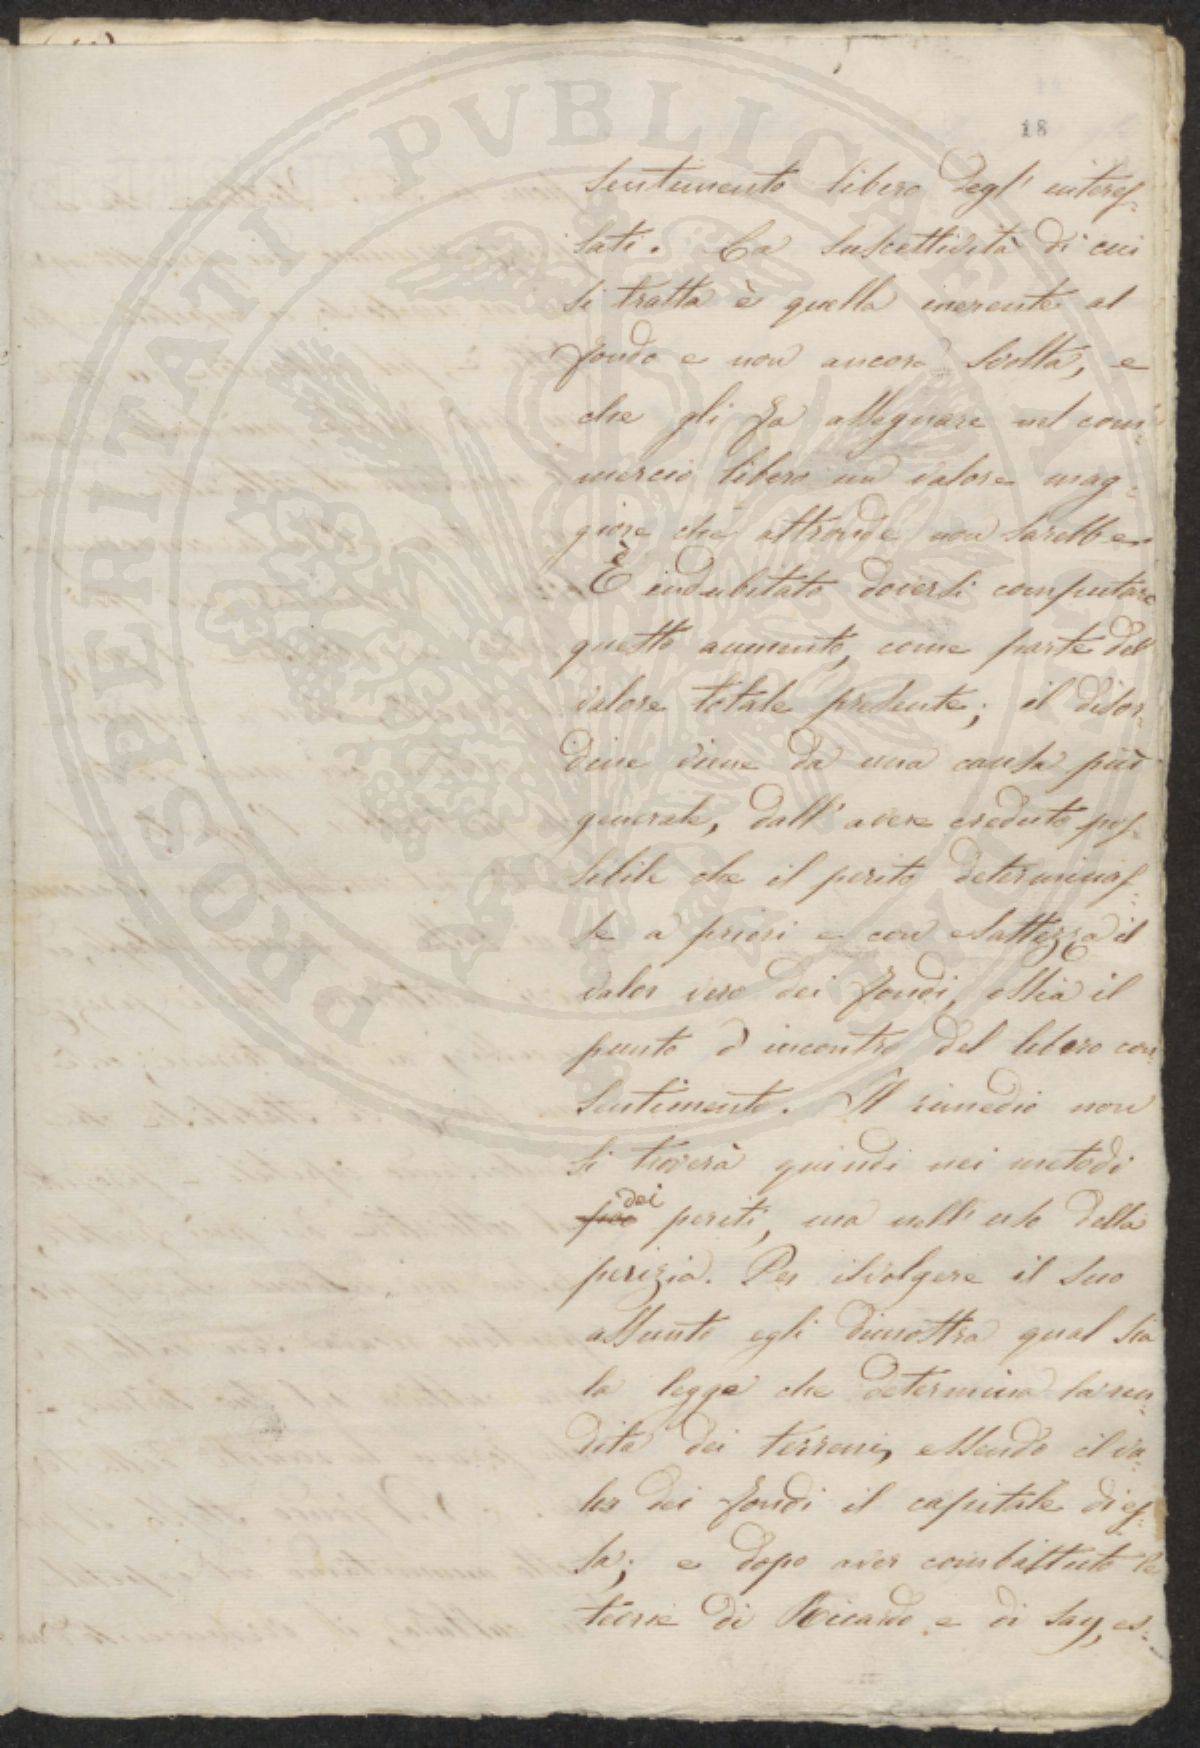 18
sentimento libero degl' interes-
sati. La suscettività di cui
si tratta è quella inerente al
fondo e non ancora svolta, e
che gli fa assegnare nel com-
mercio libero un valore mag-
giore che altronde non sarebbe.
È indubitato doversi computare
questo aumento, come parte del
valore totale presente; il disor-
dine viene da una causa più
generale, dall' avere creduto pos-
sibile che il perito determinas-
se a priori e con esattezza il
valor vero dei fondi, ossia il
punto d' incontro del libero con-
sentimento. Il rimedio non
si troverà quindi nei metodi
dei
periti, ma nell' uso della
perizia. Per isvolgere il suo
assunto egli dimostra qual sia
la legge che determina la ren-
dita dei terreni, essendo il va-
lor dei fondi il capitale di es-
sa; e dopo aver combattuto le
teorie di Riccardo e di Say, es-
PROSPERITATI PVBLICAE